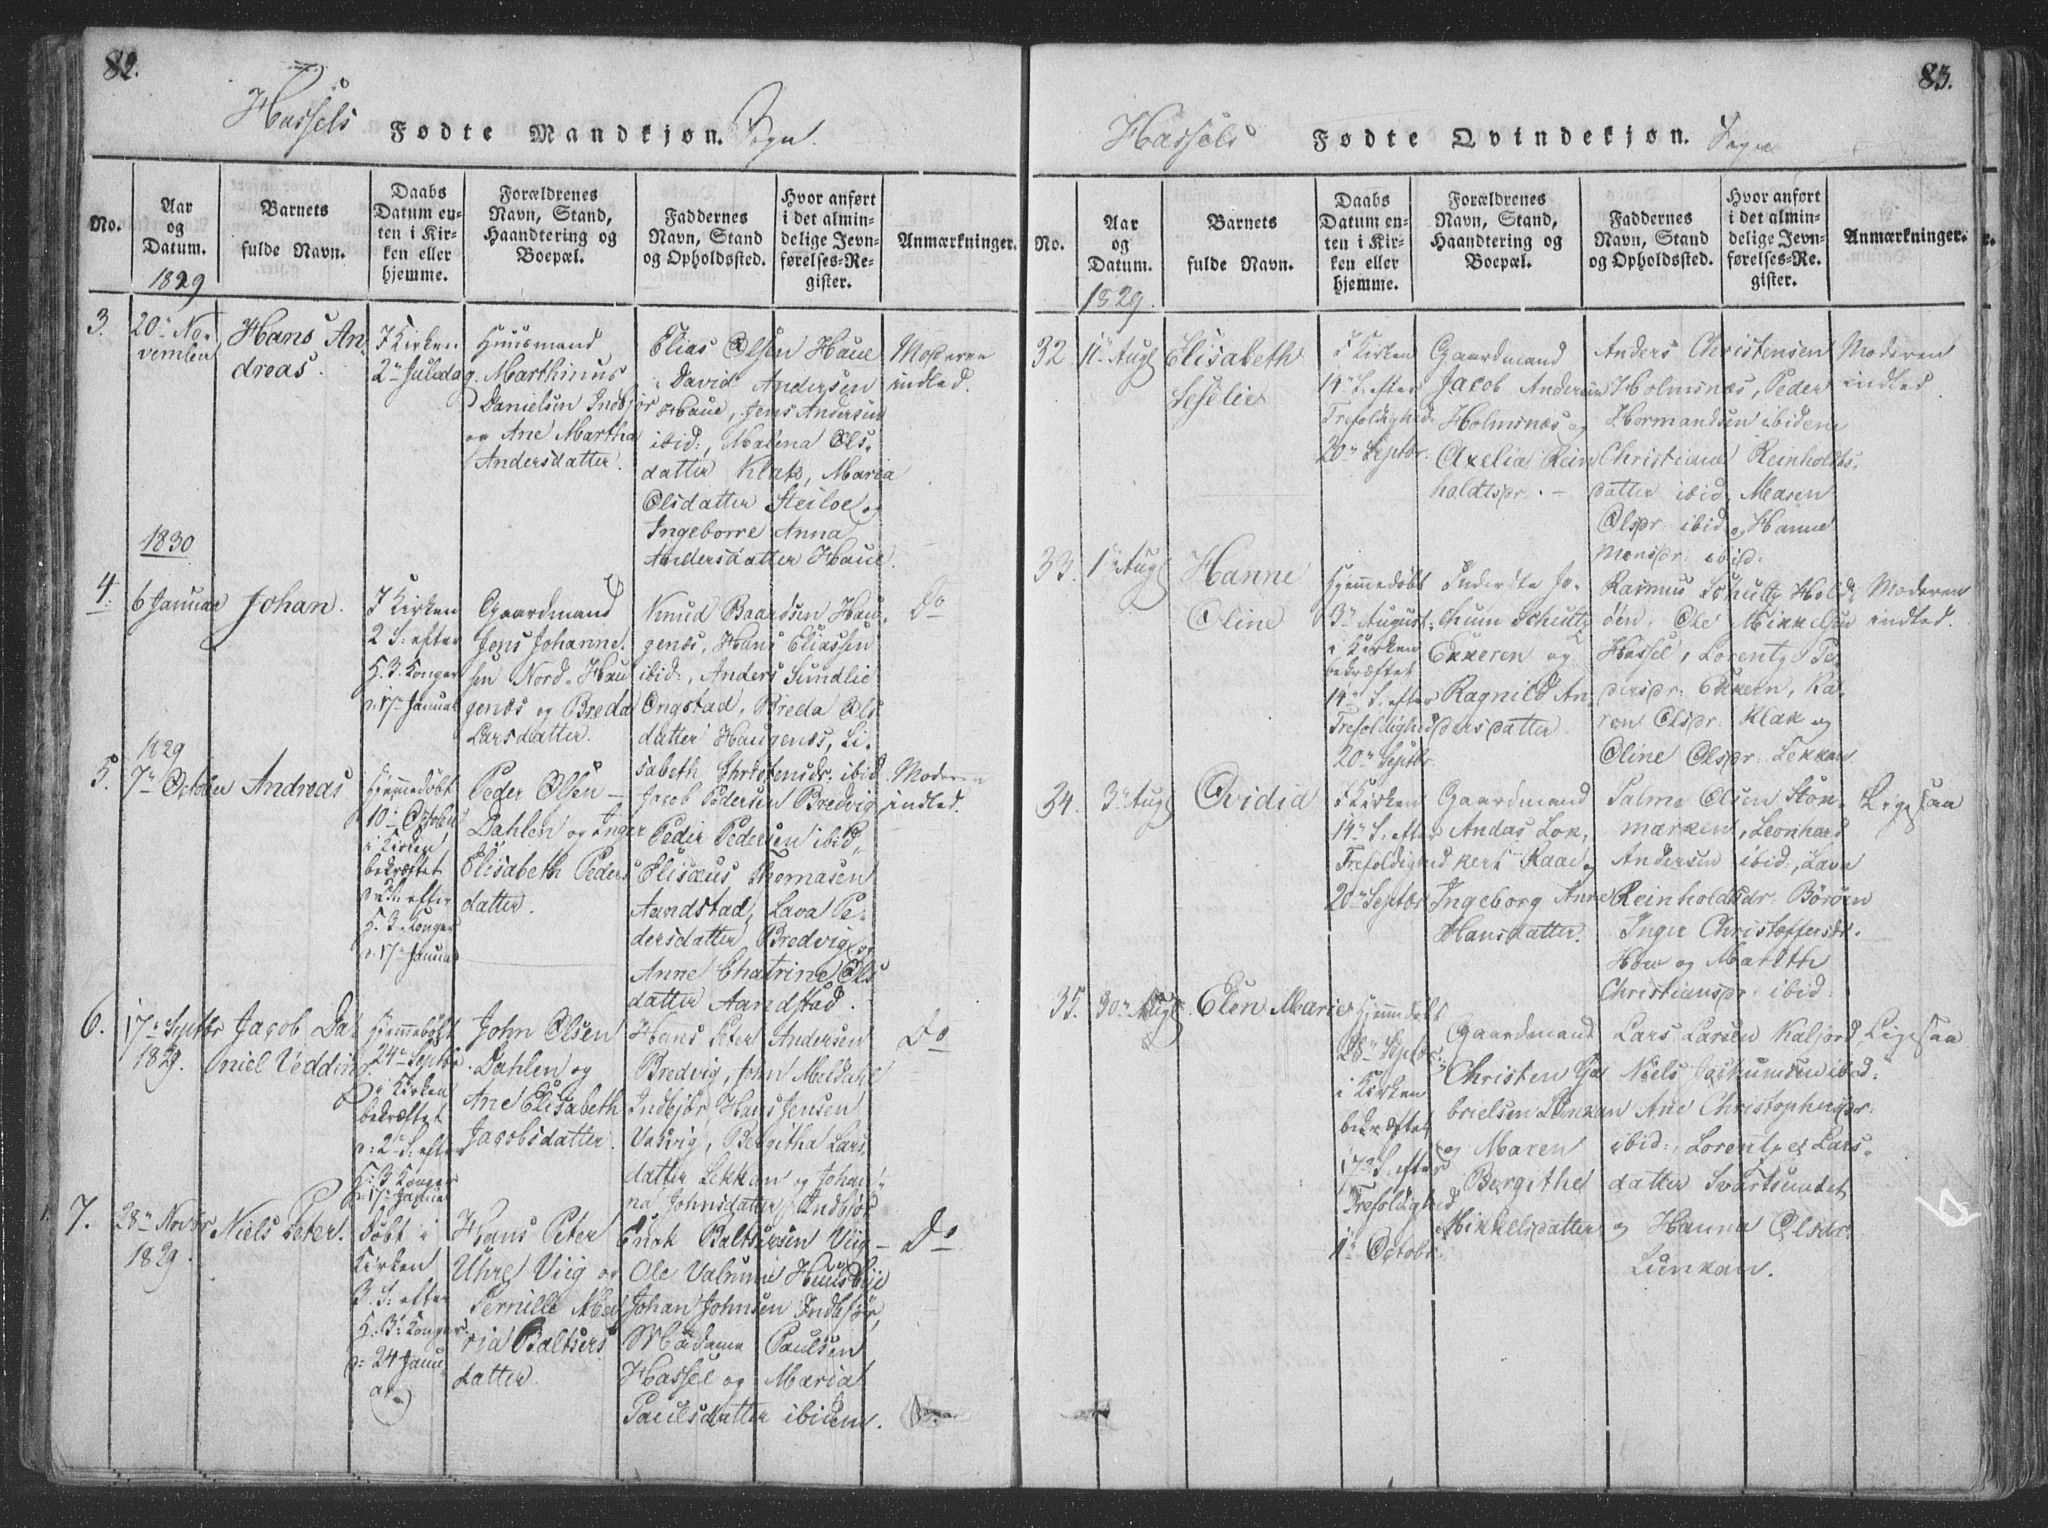 82.
Hassels Fødte Mandkjøn. Sogn.
No.
Aar
og
Datum.
Barnets
fulde Navn.
Daabs
Datum en-
ten i Kir-
ken eller
hjemme.
Forældrenes
Navn, Stand,
Haandtering og
Boepæl.
Faddernes
Navn, Stand
og Opholdssted.
Hvor anført
i det almin-
delige Jevn-
førelses-Re-
gister.
Anmærkninger.
1829
3.
20de No-
vember
Hans An-
dreas.
I Kirken
2den Juledag
Huusmand
Marthinus
Danielsen Indbjør
og Ane Martha
Andersdatter.
Elias Olsen Haue
David Andersen
Haue, Jens Andersen
ibid:, Malena Ols-
datter Klak, Maria
Olsdatter Steiloe og
Ingeborre Anna
Andersdatter Haue.
Moderen
indled.
1830
4.
6 Januar
Johan.
I Kirken
2 S: efter
H. 3 Konger
d: 17de Januar
Gaardmand
Jens Johanne-
sen Nord-Hau
genæs og Breda
Larsdatter.
Knud Baardsen Hau-
genæs, Hans Eliassen
ibid:, Anders Sundlie
Ongstad, Breda Ols
datter Haugenæs, Li-
sabeth Christensdr: ibid
Do
1829
5.
7de October
Andreas
Hjemmedøbt
10de October
i Kirken
bekræftet
2 S: efter
H. 3 Konger
d: 17de Januar
Peder Olsen
Dahlen og Inger
Elisabeth Peders
datter.
Jacob Pedersen Bredvig
Peder Pedersen ibid,
Elisæus Thomasen
Aandstad, Lava Pe-
dersdatter Bredvig og
Anne Chatrine Ols
datter Aandstad.
Moderen
indled.
6.
17de Septbr
1829.
Jacob Da-
niel Vedding.
Hjemmedøbt
24de Septbr
i Kirken
bekræftet
d: 2den S: efter
H: 3 Konger
d: 17de Januar
John Olsen
Dahlen og
Ane Elisabeth
Jacobsdatter.
Hans Peter Andersen
Bredvig, John Meldahl
Indbjør Hans Jensen
Vasvig, Bergitha Lars
datter Lekkan og Johan-
na Johnsdatter Indbjør
Do
7.
28de Novbr
1829.
Niels Peter.
Døbt i
Kirken
3. S: efter
H. 3: Konger
d: 24 Janu
ar
Hans Peter
Uhre Viig og
Pernille Ma-
ria Baltsers
datter.
Enok Baltsersen Viig
Ole Valrume Huusbye
Johan Johnsen Indbjør,
Madame Paulsen
Hassel og Maria
Paulsdatter ibidem.
Do
83.
Hassels Fødte Qvindekjøn. Sogn
No.
Aar
og
Datum.
Barnets
fulde Navn.
Daabs
Datum en-
ten i Kir-
ken eller
hjemme.
Forældrenes
Navn, Stand,
Haandtering og
Boepæl.
Faddernes
Navn, Stand
og Opholdssted.
Hvor anført
i det almin-
delige Jevn-
førelses-Re-
gister.
Anmærkninger.
1829.
32
11te Augt
Elisabeth
Sefelie
I Kirken
14de S. efter
Trefoldighed
20de Septbr.
Gaardmand
Jacob Andersen
Holmsnæs og
Axelia Rein
holdtspr.
Anders Christensen
Holmsnæs, Peder
Hormandsen ibidem
Christiane Reinholdts-
datter ibid, Maren
Olspr: ibid og Hanne
Monspr: ibid:
Moderen
indled
33.
1ste Augt
Hanne
Oline
Hjemmedøbt
3die August
i Kirken
bekræftet
14de S. efter
Trefoldighed
20de Septbr.
Inderste Jo-
chum Schultz
Ekkeren og
Ragnild An-
dersdatter.
Rasmus Schultz Hold-
øen, Ole Mikkelsen
Hassel, Lorentz Pe-
derspr: Ekkern, Ka-
ren Olspr. Klak og
Oline Olspr: Lekkan
Moderen
indled.
34.
3die Augt
Ovidia
I Kirken
14de S. efter
Trefoldighed
20de Septbr
Gaardmand
Andas Lok-
kert Raae og
Ingeborg Anne
Hansdatter.
Salmo Olsen Stok-
marken, Leonhard
Andersen ibid:, Lava
Reinholdtsdr. Børøen
Inger Christoffersdr.
How og Mareth
Christianspr: ibid:
Ligesaa
35.
30te Augt
Elen Marie
Hjemmedøbt
28de Septbr.
i Kirken
bekræftet
17de S. efter
Trefoldighed
4de Octobr.
Gaardmand
Christen Ga
brielsen Lunkan
og Maren
Bergithe
Mikkelsdatter
Lars Larsen Kaljord
Niels Jochumsen ibid:
Ane Christophespr:
ibid:, Lorentze Lars-
datter Svartsundet
og Hanna Olsdr
Lunkan.
Ligesaa